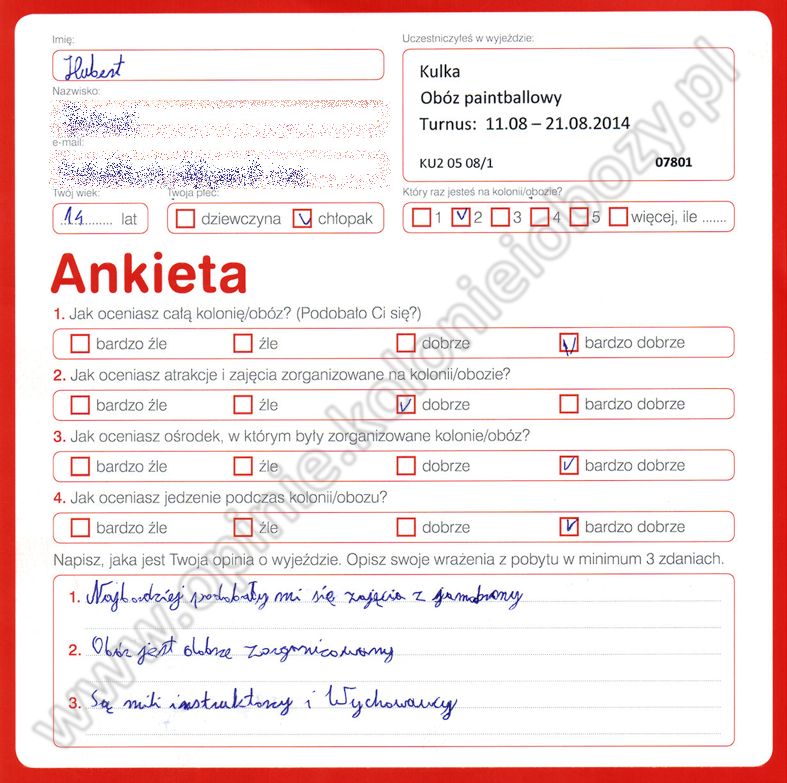 Imię:
Hubert
Nazwisko:
e-mail:
Twój wiek:
14 lat
Twoja płeć:
dziewczyna chłopak
Uczestniczyłeś w wyjeździe:
Kulka
Obóz paintballowy
Turnus: 11.08 – 21.08.2014
KU2 05 08/1 07801
Który raz jesteś na kolonii/obozie?
1 2 3 4 5 więcej, ile .......
Ankieta
1. Jak oceniasz całą kolonię/obóz? (Podobało Ci się?)
bardzo źle źle dobrze bardzo dobrze
2. Jak oceniasz atrakcje i zajęcia zorganizowane na kolonii/obozie?
bardzo źle źle dobrze bardzo dobrze
3. Jak oceniasz ośrodek, w którym były zorganizowane kolonie/obóz?
bardzo źle źle dobrze bardzo dobrze
4. Jak oceniasz jedzenie podczas kolonii/obozu?
bardzo źle źle dobrze bardzo dobrze
Napisz, jaka jest Twoja opinia o wyjeździe. Opisz swoje wrażenia z pobytu w minimum 3 zdaniach.
1. Najbardziej podobały mi się zajęcia z
2. Obóz jest dobrze zorganizowany
3. Są mili instruktorzy i Wychowawcy
www.opinie.kolonieiobozy.pl